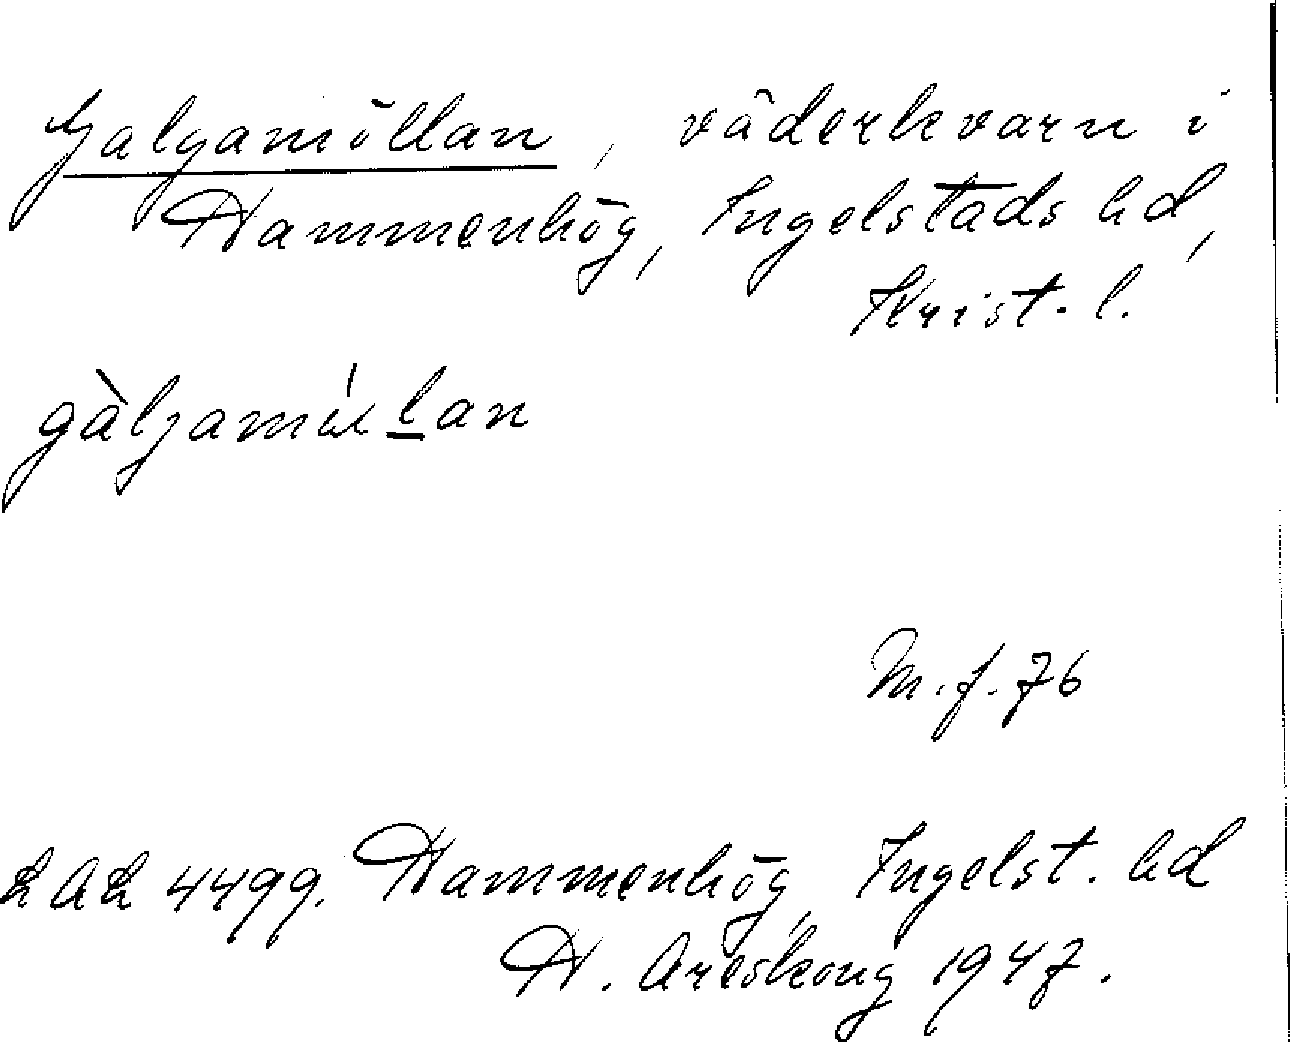 Galgamöllan, väderkvarn i
Hammenhög, Ingelstads hd,
Krist. l.
M. f. 76
LAL 4499. Hammenhög, Ingelst. hd
H. Areskoug 1947.